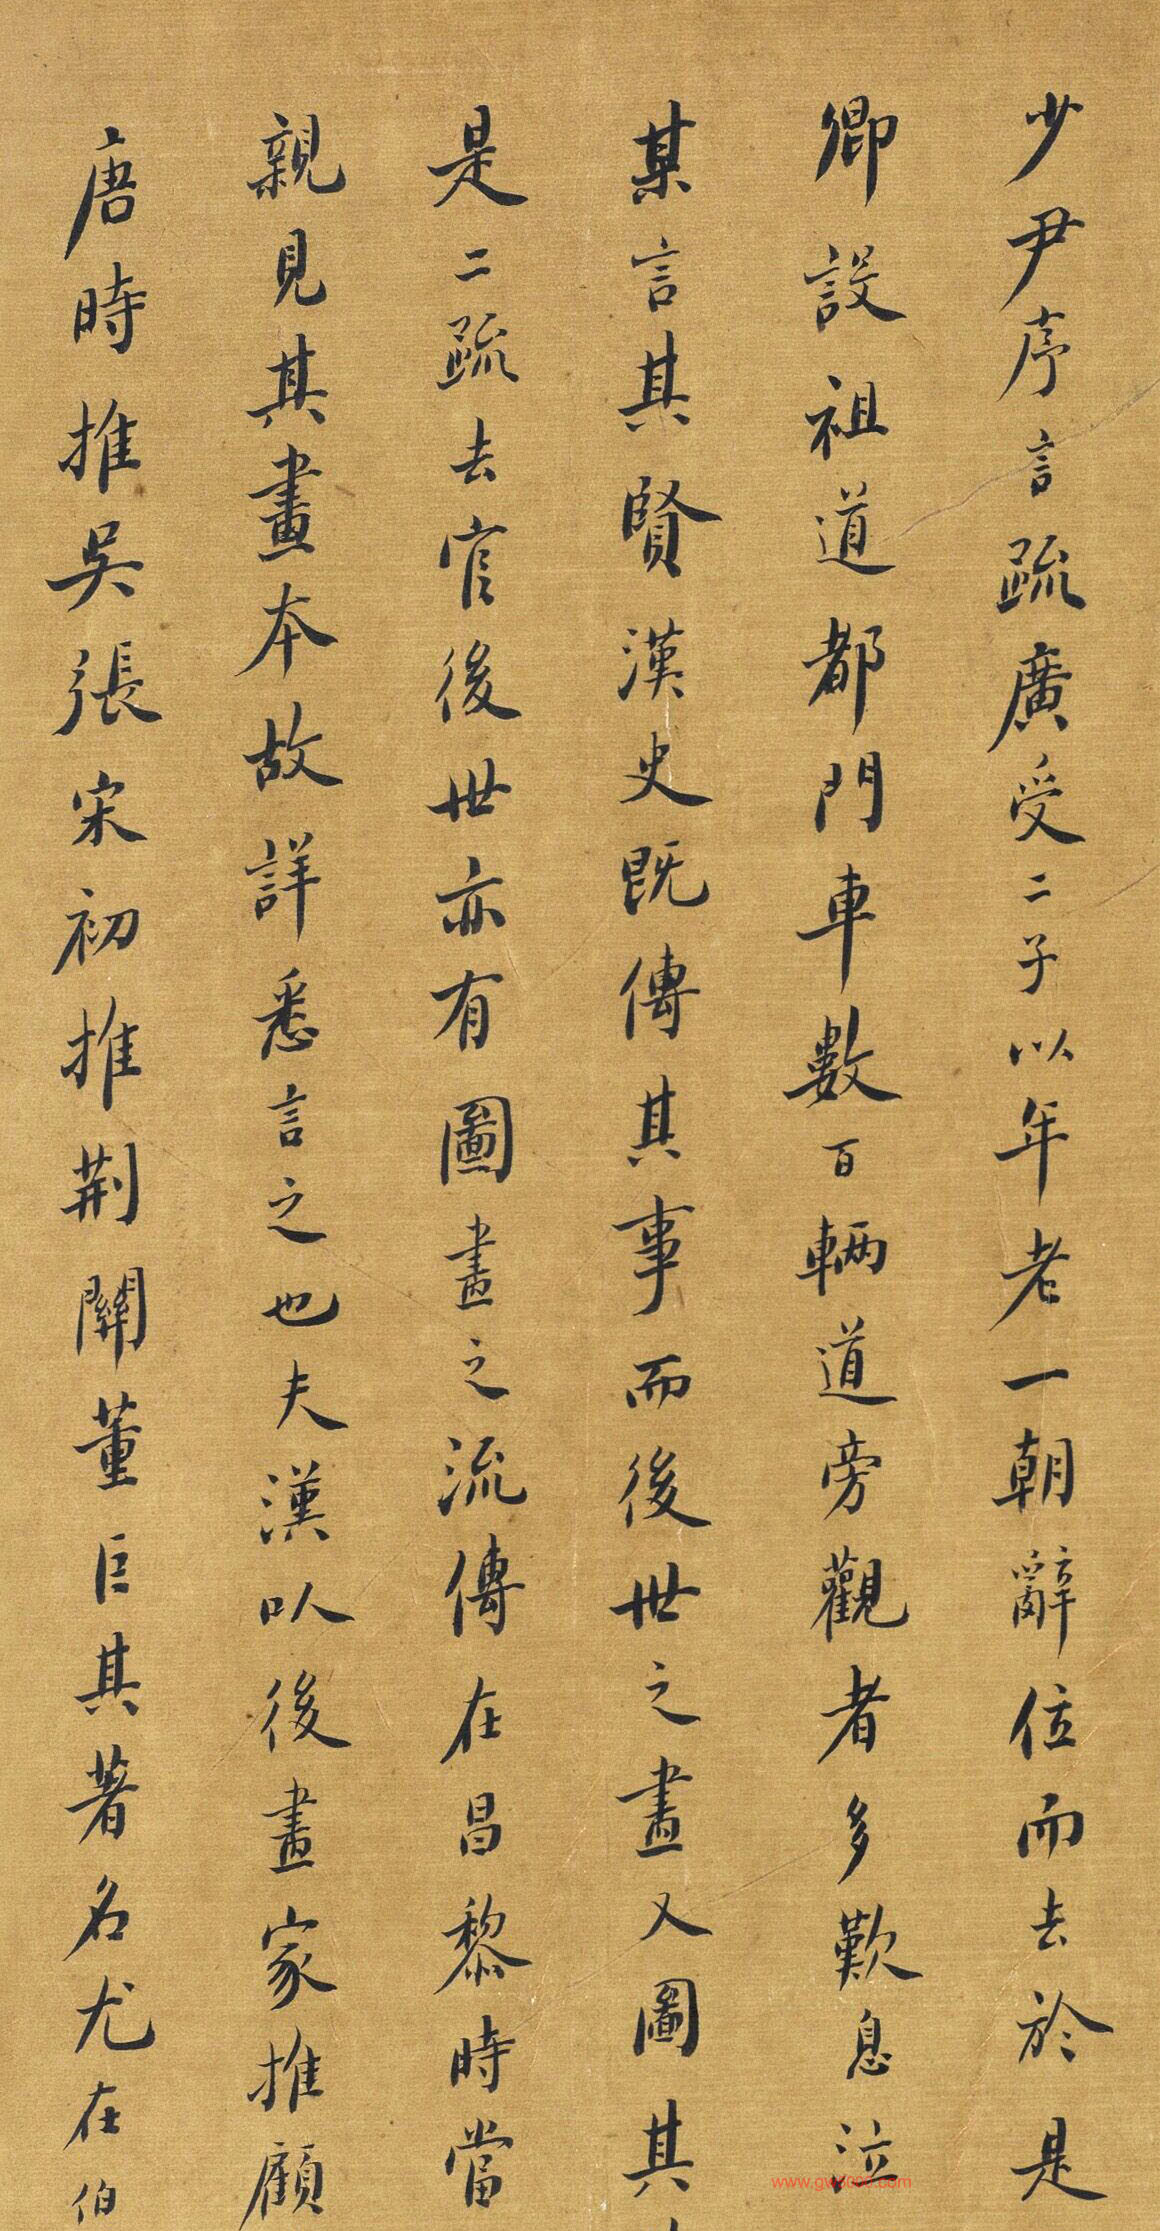 少尹序言疏廣受二子以年老一朝辭位而去於是
卿設祖道都門車數百輛道旁觀者多歎息泣
某言其賢漢史既傳其事而後世之畫又圖其
是二疏去官後世亦有圖畫之流傳在昌黎時當
親見其畫本故詳悉言之也夫漢以後畫家推顧
唐時推吳張宋初推荆關董巨其著名尤在伯
www.gw5000.com